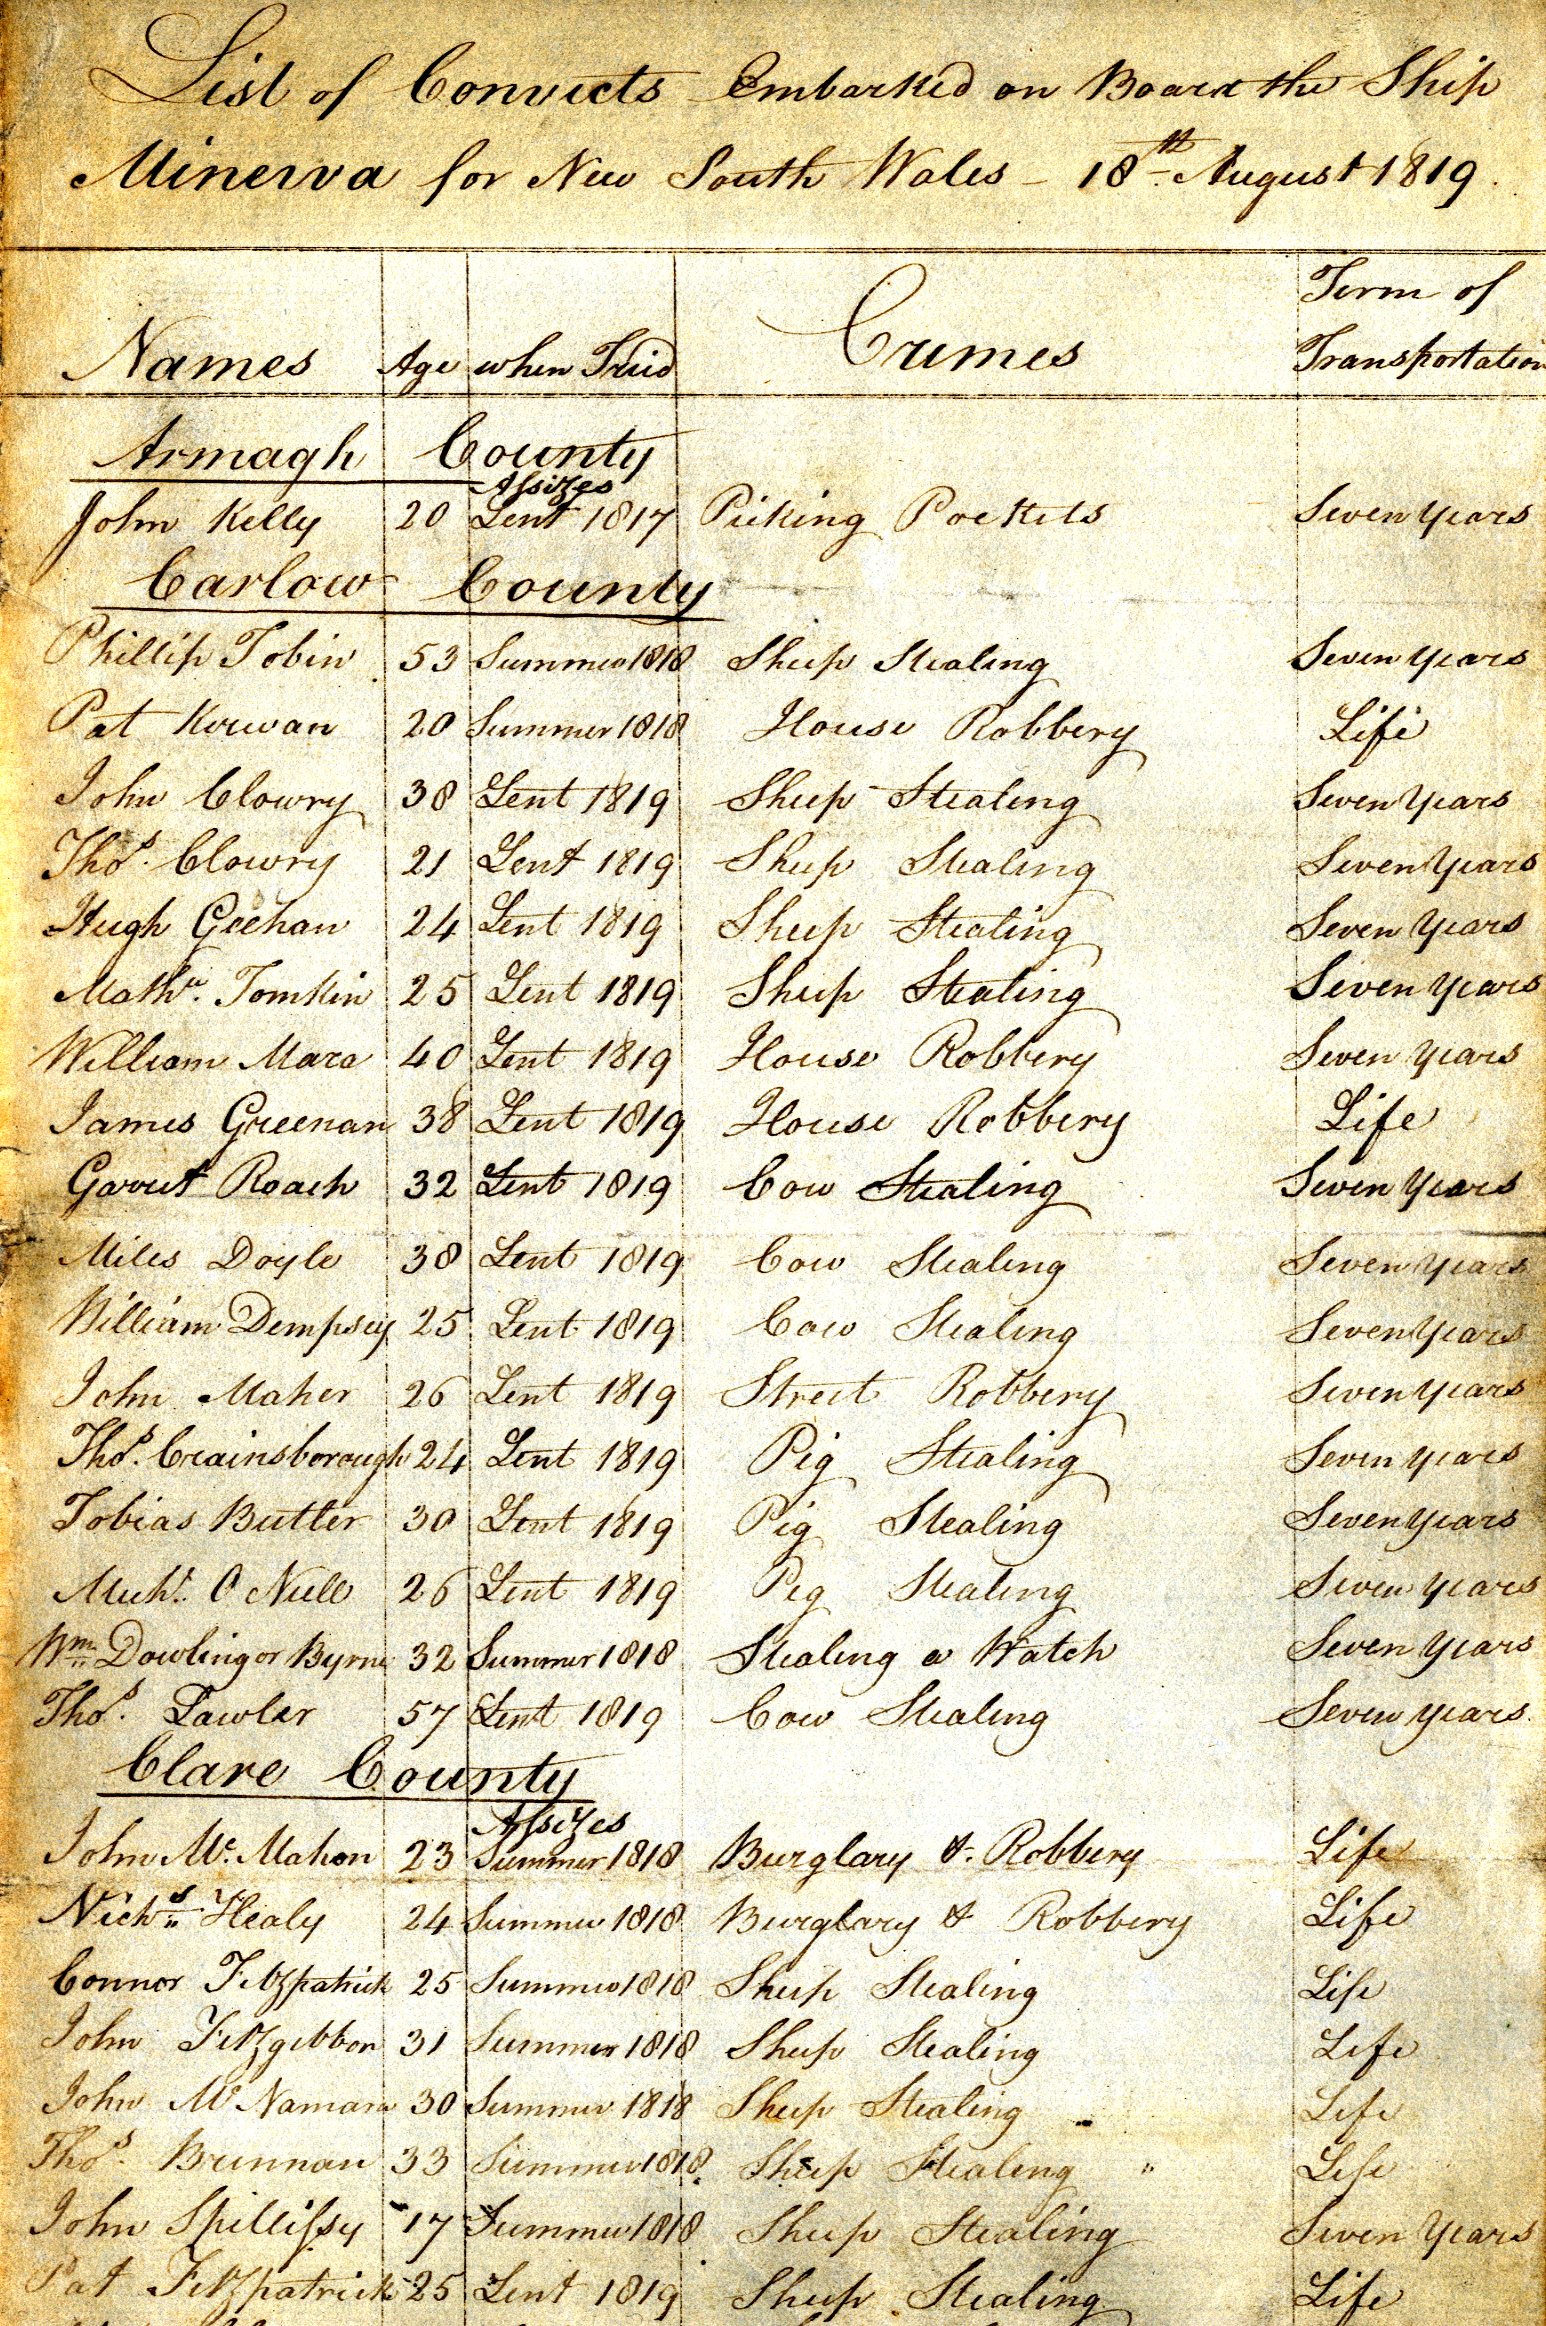 List of Convicts Embarked on Board the Ship
Minerva for New South Wales - 18th August 1819.
Term of
Names Age when Tried Crimes Transportation
Armagh County
Assizes
John Kelly 20 Lent 1817 Picking Pockets Seven Years
Carlow County
Phillip Tobin 53 Summer 1818 Sheep Stealing Seven Years
Pat Kirwan 20 Summer 1818 House Robbery Life
John Clowry 38 Lent 1819 Sheep Stealing Seven Years
Thos. Clowry 21 Lent 1819 Sheep Stealing Seven Years
Hugh Geehan 24 Lent 1819 Sheep Stealing Seven Years
Mathw. Tomkin 25 Lent 1819 Sheep Stealing Seven Years
William Mara 40 Lent 1819 House Robbery Seven Years
James Greenan 38 Lent 1819 House Robbery Life
Garret Roach 32 Lent 1819 Cow Stealing Seven Years
Miles Doyle 38 Lent 1819 Cow Stealing Seven Years
William Dempsey 25 Lent 1819 Cow Stealing Seven Years
John Maher 26 Lent 1819 Street Robbery Seven Years
Thos. Crainsborough 24 Lent 1819 Pig Stealing Seven Years
Tobias Butler 30 Lent 1819 Pig Stealing Seven Years
Michl. O Neill 26 Lent 1819 Pig Stealing Seven Years
Wm Dowling or Byrne 32 Summer 1818 Stealing a Watch Seven Years
Thos. Lawler 57 Lent 1819 Cow Stealing Seven Years.
Clare County
Assizes
John Mc. Mahon 23 Summer 1818 Burglary & Robbery Life
Nichs Healy 24 Summer 1818 Burglary & Robbery Life
Connor Fitzpatrick 25 Summer 1818 Sheep Stealing Life
John Fitzgibbon 31 Summer 1818 Sheep Stealing Life
John Mc Namara 30 Summer 1818 Sheep Stealing Life
Thos. Brennan 33 Summer 1818. Sheep Stealing " Life
John Spillissy 17 Summer 1818 Sheep Stealing Seven Years
Pat Fitzpatrick 25 Lent 1819 Sheep Stealing Life